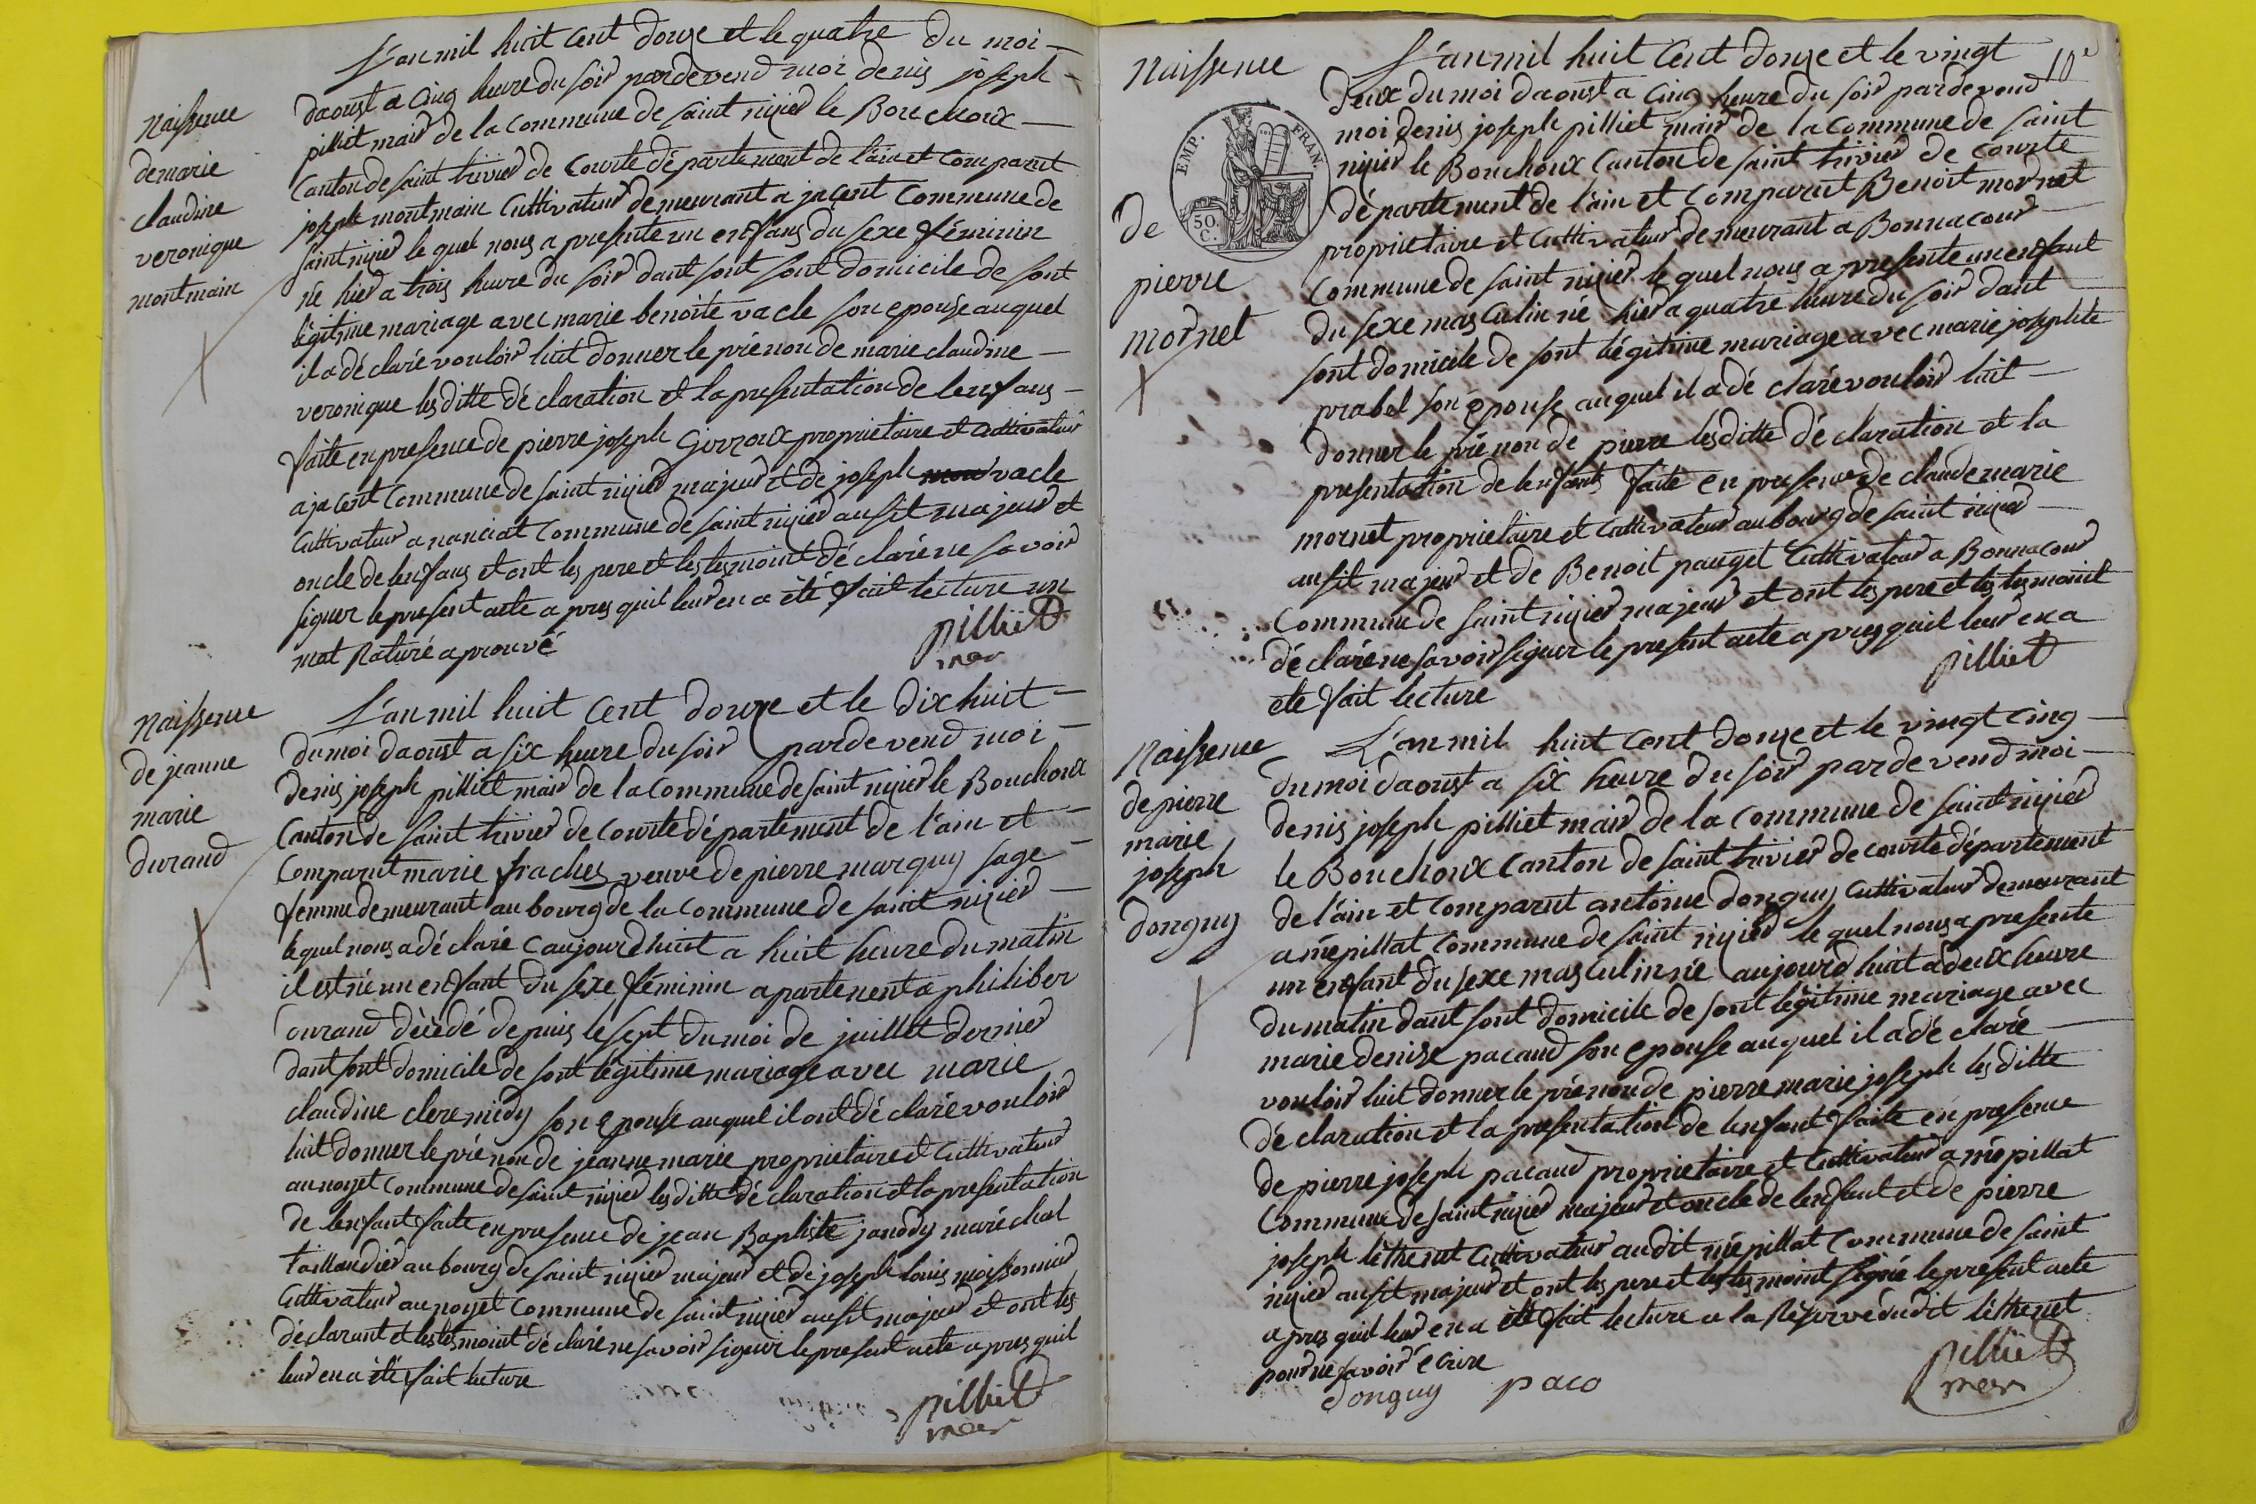 Naissence
de marie
claudine
veronique
montmain
L'an mil huit cent douze et le quatre du moi
daoust a cinq heure du soir pardevend moi denis joseph
pilliet mair de la commune de saint nizier le Bouchoux
canton de saint trivier de courte département de l'ain et comparut
joseph montmain cultivateur demeurant a jacent commune de
saint nizier le quel nous a presenté un enfans du sexe féminin
né hier a trois heure du soir dant sont sont domicile de sont
légitime mariage avec marie benoite vacle son epouse auquel
il a déclaré vouloir luit donner le prénon de marie claudine
veronique lesditte déclaration et la presentation de lenfans
faite en presence de pierre joseph Girroux proprietaire et cultivateur
a jacent commune de saint nizier majeur et de joseph vacle
cultivateur a nanciat commune de saint nizier ausit majeur et
oncle de lenfans et ont les pere et les tesmoint déclaré ne savoir
signer le present acte apres quil leur en a été fait lecture un
mot raturé aprouvé
pilliet
mer
Naissence
de jeanne
marie
durand
L'an mil huit cent douze et le dix huit
du moi daoust a six heure du soir pardevend moi
denis joseph pilliet mair de la commune de saint nizier le Bouchoux
canton de saint trivier de courte département de l'ain et
comparut marie fraches veuve de pierre marguy sage
femme demeurant au bourg de la commune de saint nizier
lequel nous a déclaré caujourdhuit a huit heure du matin
il est né un enfant du sexe féminin apartenent a philiber
durand décédé depuis le sept du moi de juillet dernier
dant sont domicile de sont légitime mariage avec marie
claudine clere midy son epouse auquel il ont déclaré vouloir
luit donner le prénon de jeanne marie proprietaire et cultivateur
au noyet commune de saint nizier lesditte déclaration et la presentation
de lenfant faite en presence de jean Baptiste janody maréchal
taillandier au bourg de saint nizier majeur et de joseph louis moissonnier
cultivateur au noyet commune de saint nizier ausit majeur et ont les
déclarant et les tesmoint déclaré ne savoir signer le present acte apres quil
leur en a été fait lecture
pilliet
mer
10e
Naissence
de
pierre
mornet
EMP. FRAN.
50 C.
L'an mil huit cent douze et le vingt
deux du moi daoust a cinq heure du soir pardevend
moi denis joseph pilliet mair de la commune de saint
nizier le Bouchoux canton de saint trivier de courte
département de l'ain et comparut Benoit mornet
proprietaire et cultivateur demeurant a Bonnacour
commune de saint nizier le quel nous a presente un enfant
du sexe masculin né hier a quatre heure du soir dant
sont domicile de sont légitime mariage avec marie josephte
prabel son epouse auquel il a dé claré vouloir luit
donner le prénon de pierre lesditte déclaration et la
presentation de lenfant faite en presence de claude marie
mornet proprietaire et cultivateur au bourg de saint nizier
ausit majeur et de Benoit pauget cultivateur a Bonnacour
commune de saint nizier majeur et ont les pere et les tesmoint
déclaré ne savoir signer le present acte apres quil leur en a
ete fait lecture
pilliet
Naissence
de pierre
marie
joseph
donguy
L'an mil huit cent douze et le vingt cinq
du moi daoust a six heure du soir pardevend moi
denis joseph pilliet mair de la commune de saint nizier
le Bouchoux canton de saint trivier de courte département
de l'ain et comparut antoine donguy cultivateur demeurant
a mépillat commune de saint nizier le quel nous a presente
un enfant du sexe masculin né aujourd huit a deux heure
du matin dant sont domicile de sont légitime mariage avec
marie denise pacaud son epouse auquel il a dé claré
vouloir luit donner le prénon de pierre marie joseph lesditte
déclaration et la presentation de lenfant faite en presence
de pierre joseph pacaud proprietaire et cultivateur a mépillat
commune de saint nizier majeur et oncle de lenfant et de pierre
joseph lethenet cultivateur audit mépillat commune de saint
nizier ausit majeur et ont les pere et les tesmoint signé le present acte
apres quil leur en a été fait lecture a la réserve dudit lethenet
pour ne savoir écrire
donguy paco
pilliet
mer